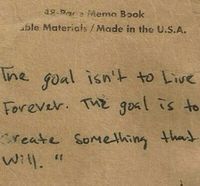 48-Page Memo Book
able Materials / Made in the U.S.A.
The goal isn't to Live
Forever. The goal is to
create something that
will. "